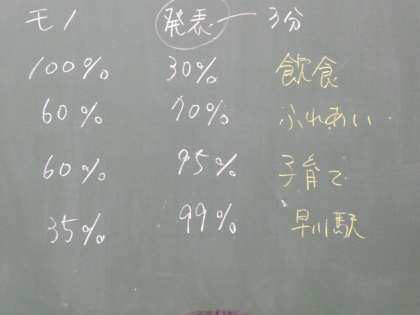 モノ 発表 ー 3分
100% 30% 飲食
60% 70% ふれあい
60% 95% 子育て
35% 99% 早川駅